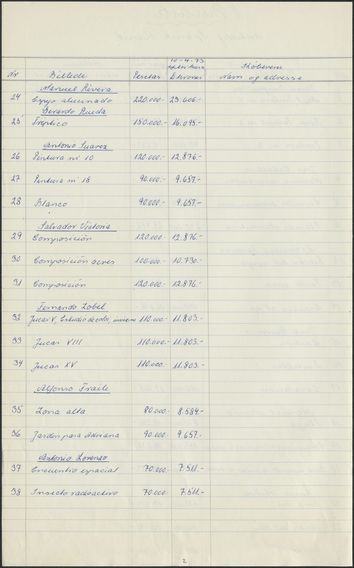 10-4-73
Køberen
Nr Billede Pesetas Kroner Navn og adresse
Manuel Rivera
24 Espejo alucinado 220.000.- 23.606.-
Gerardo Rueda
25 Triptico 150.000.- 16.095.-
Antonio Suarez
26 Pintura nº 10 120.000.- 12.876.-
27 Pintura nº 18 90.000.- 9.657.-
28 Blanco 90.000.- 9.657.-
Salvador Victoria
29 Composición 120.000.- 12.876.-
30 Composición ocres 100.000.- 10.730.-
31 Composición 120.000.- 12.876.-
Fernando Zobel
32 Jucar V. Estudio de color, 110.000.- 11.803.-
33 Jucar VIII 110.000.- 11.803.-
34 Jucar XV 110.000.- 11.803.-
Alfonso Fraile
35 Zona alta 80.000.- 8.584.-
36 Jardin para Adriana 90.000.- 9.657.-
Antonio Lorenzo
37 Encuentro espacial 70.000.- 7.511.-
38 Insecto radioactivo 70.000.- 7.511.-
2